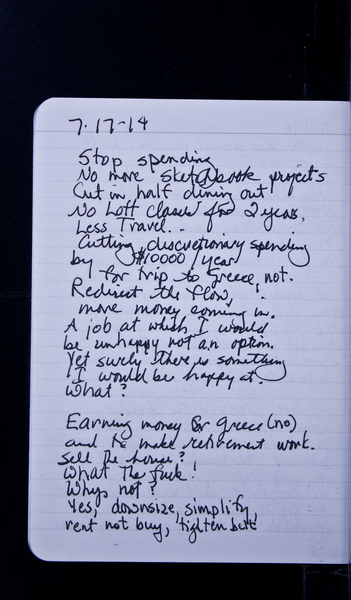 7-17-14
Stop spending
No more sketchbook projects
Cut in half dining out
No Loft classes for 2 years,
Less Travel..
Cutting discretionary spending
by $10000/year
for trip to Greece, not.
Redirect the flow,
more money coming in.
A job at which I would
be unhappy not an option.
Yet surely there is something
I would be happy at.
What?
Earning money for Greece (no)
and to make retirement work.
Sell the house?
What the fuck!
Why not?
Yes, downsize, simplify,
rent not buy, tighten belt